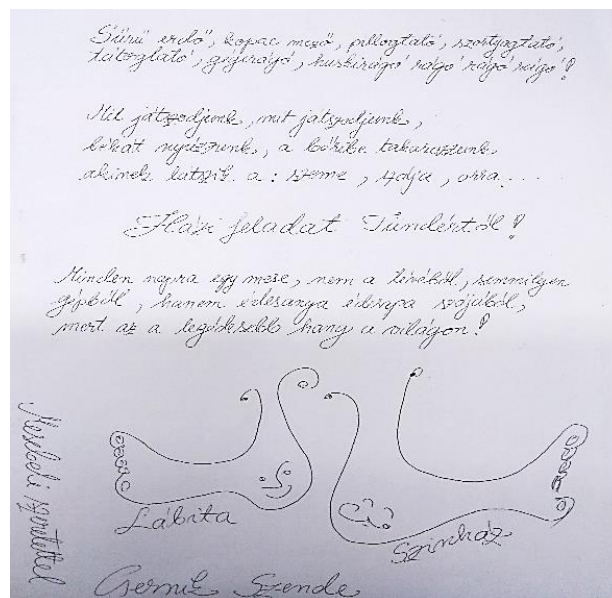 Sűrű erdő, kopac mező, pillogtató, szortyogtató,
tátogtató, gégerágó, huskirágó rágó rágó rágó!
Mit játszodjunk, mit játszodjunk,
békát nyúzzunk, a bőribe takarozzunk
akinek látszik a: szeme, szája, orra...
Házi feladat Tündértől!
Minden napra egy mese, nem a tévéből, semmilyen
gépből, hanem édesanya édesapa szájából,
mert az a legédesebb hang a világon!
Lábita
Színház
Mesebeli szeretettel
Szende